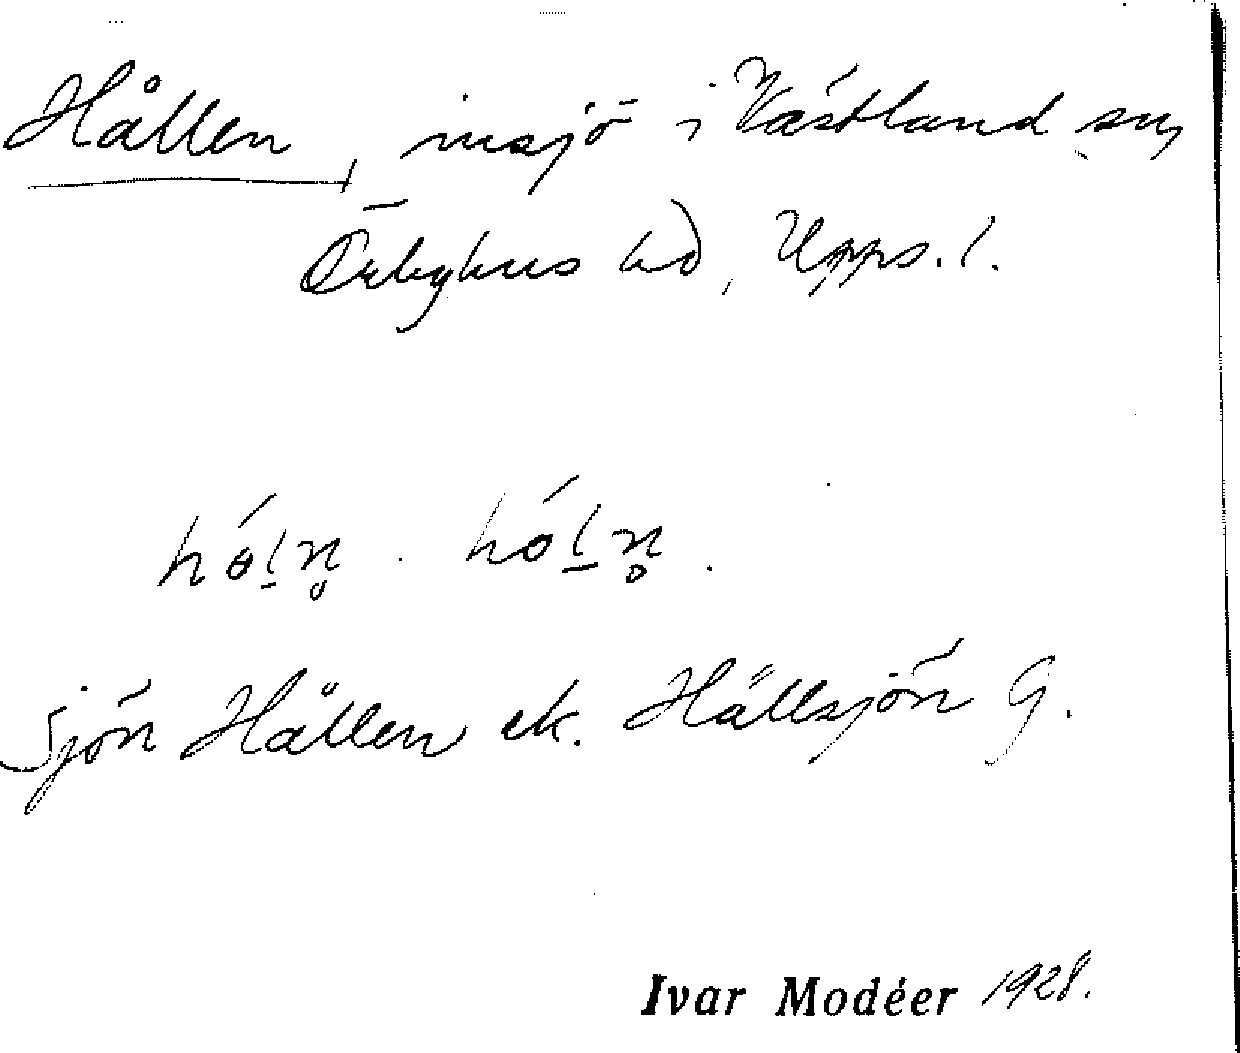 Hållen, insjö i Västland sn,
Örbyhus hd, Upps. l.
hól̲n̥ . hól̲n̥ .
Sjön Hållen ek. Hållsjön G.
Ivar Modéer 1928.